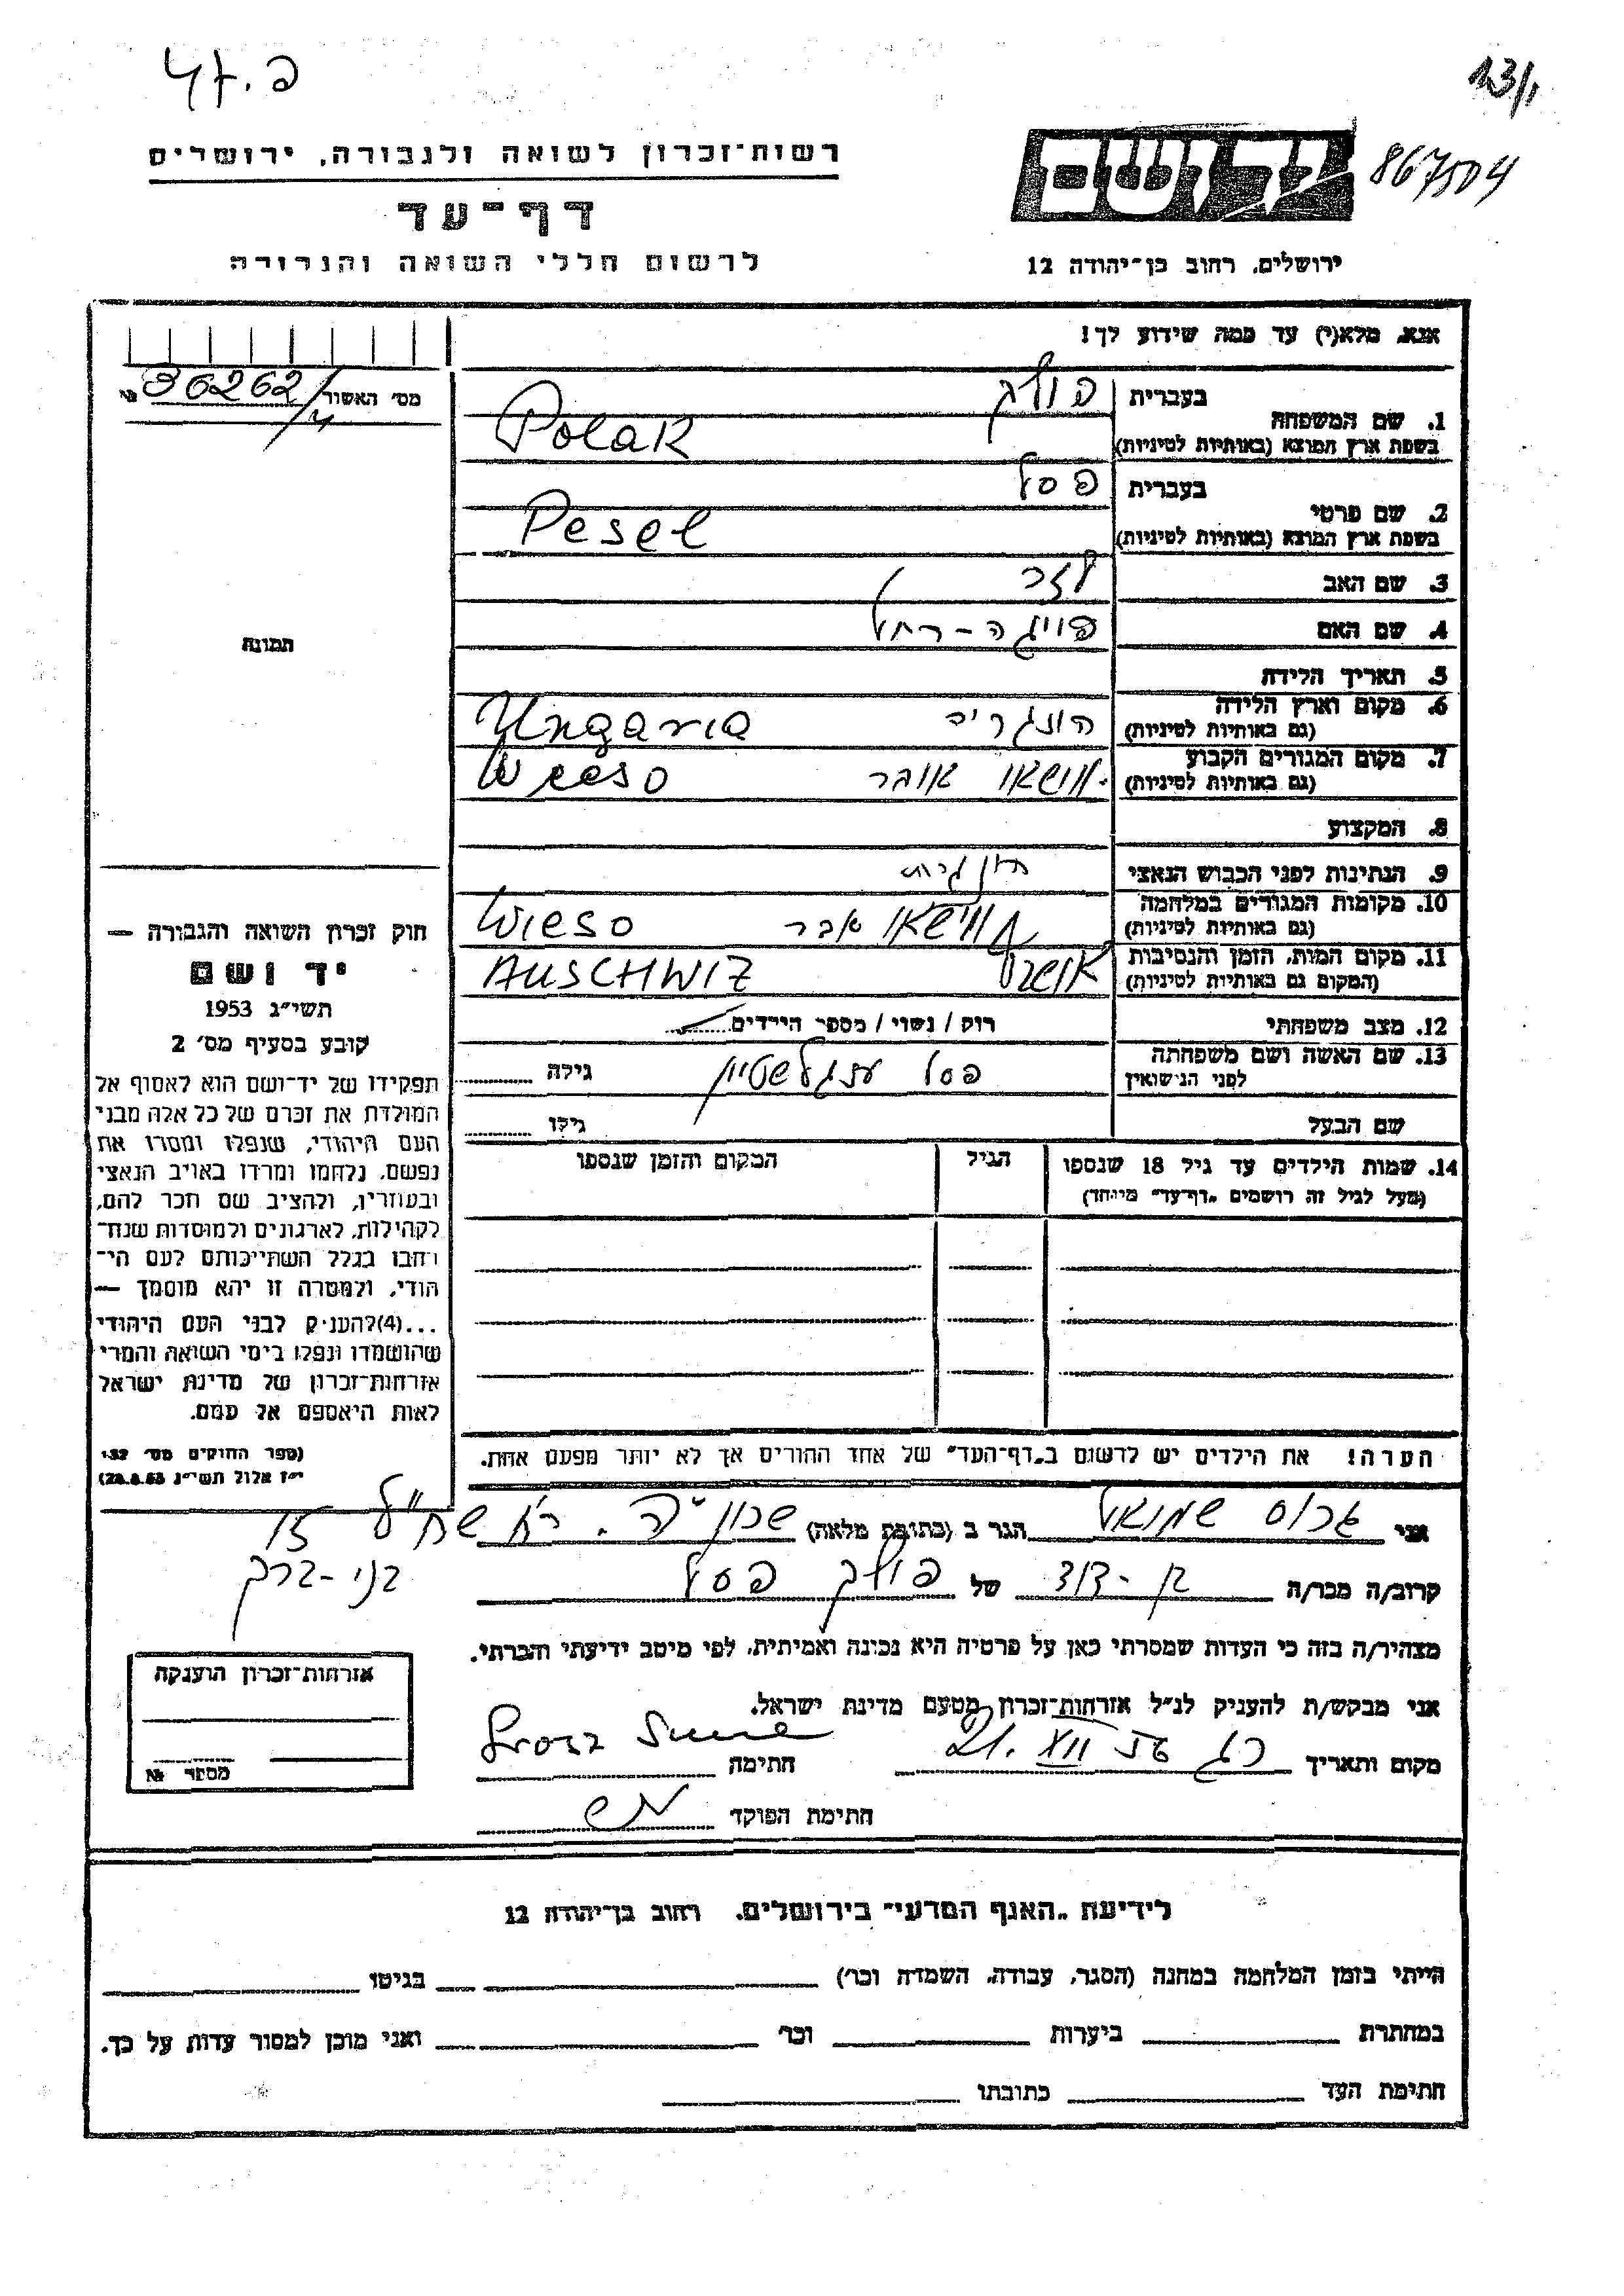 פ. 47
13/1
רשות־זכרון לשואה ולגבורה, ירושלים
867504
דף־עד
לרשום חללי השואה והגבורה
ירושלים, רחוב בן־יהודה 12
אנא, מלא(י) עד כמה שידוע לך!
מס׳ האשור № 36262/
1. שם המשפחה
בעברית פולק
בשפת ארץ המוצא (באותיות לטיניות) Polak
2. שם פרטי
בעברית פסל
בשפת ארץ המוצא (באותיות לטיניות) Pesel
3. שם האב לזר
4. שם האם פויגה-רחל
תמונה
5. תאריך הלידה
6. מקום וארץ הלידה (גם באותיות לטיניות) הונגריה Ungaria
7. מקום המגורים הקבוע (גם באותיות לטיניות) אובר Wieso
8. המקצוע
9. הנתינות לפני הכבוש הנאצי
10. מקומות המגורים במלחמה (גם באותיות לטיניות) ווישאו אבר Wieso
11. מקום המות, הזמן והנסיבות (המקום גם באותיות לטיניות) AUSCHWIZ
12. מצב משפחתי רוק / נשוי / מספר הילדים
13. שם האשה ושם משפחתה לפני הנישואין פסל גילה
שם הבעל גילו
14. שמות הילדים עד גיל 18 שנספו (מעל לגיל זה רושמים „דף־עד״ מיוחד)
הגיל
המקום והזמן שנספו
הערה! את הילדים יש לרשום ב„דף־העד״ של אחד ההורים אך לא יותר מפעם אחת.
חוק זכרון השואה והגבורה —
יד ושם
תשי״ג 1953
קובע בסעיף מס׳ 2
תפקידו של יד־ושם הוא לאסוף אל
המולדת את זכרם של כל אלה מבני
העם היהודי, שנפלו ומסרו את
נפשם, נלחמו ומרדו באויב הנאצי
ובעוזריו, ולהציב שם וזכר להם,
לקהילות, לארגונים ולמוסדות שנח־
רבו בגלל השתייכותם לעם הי־
הודי, ולמטרה זו יהא מוסמך —
...(4)להעניק לבני העם היהודי
שהושמדו ונפלו בימי השואה והמרי
אזרחות־זכרון של מדינת ישראל
לאות היאספם אל עמם.
(ספר החוקים מס׳ 132
י״ז אלול תשי״ג 28.8.53)
אני גרוס שמואל הגר ב (כתובת מלאה) שכון ה׳ . רח׳ 15
בני-ברק
קרוב/ה מכר/ה בן-דוד של פולק פסל
מצהיר/ה בזה כי העדות שמסרתי כאן על פרטיה היא נכונה ואמיתית, לפי מיטב ידיעתי והכרתי.
אני מבקש/ת להעניק לנ״ל אזרחות־זכרון מטעם מדינת ישראל.
מקום ותאריך 21. XII 56 חתימה Grosz
חתימת הפוקד
אזרחות־זכרון הוענקה
מספר №
לידיעת „האגף המדעי״ בירושלים, רחוב בן־יהודה 12
הייתי בזמן המלחמה במחנה (הסגר, עבודה, השמדה וכו׳) בגיטו
במחתרת ביערות וכו׳ ואני מוכן למסור עדות על כך.
חתימת העד כתובתו